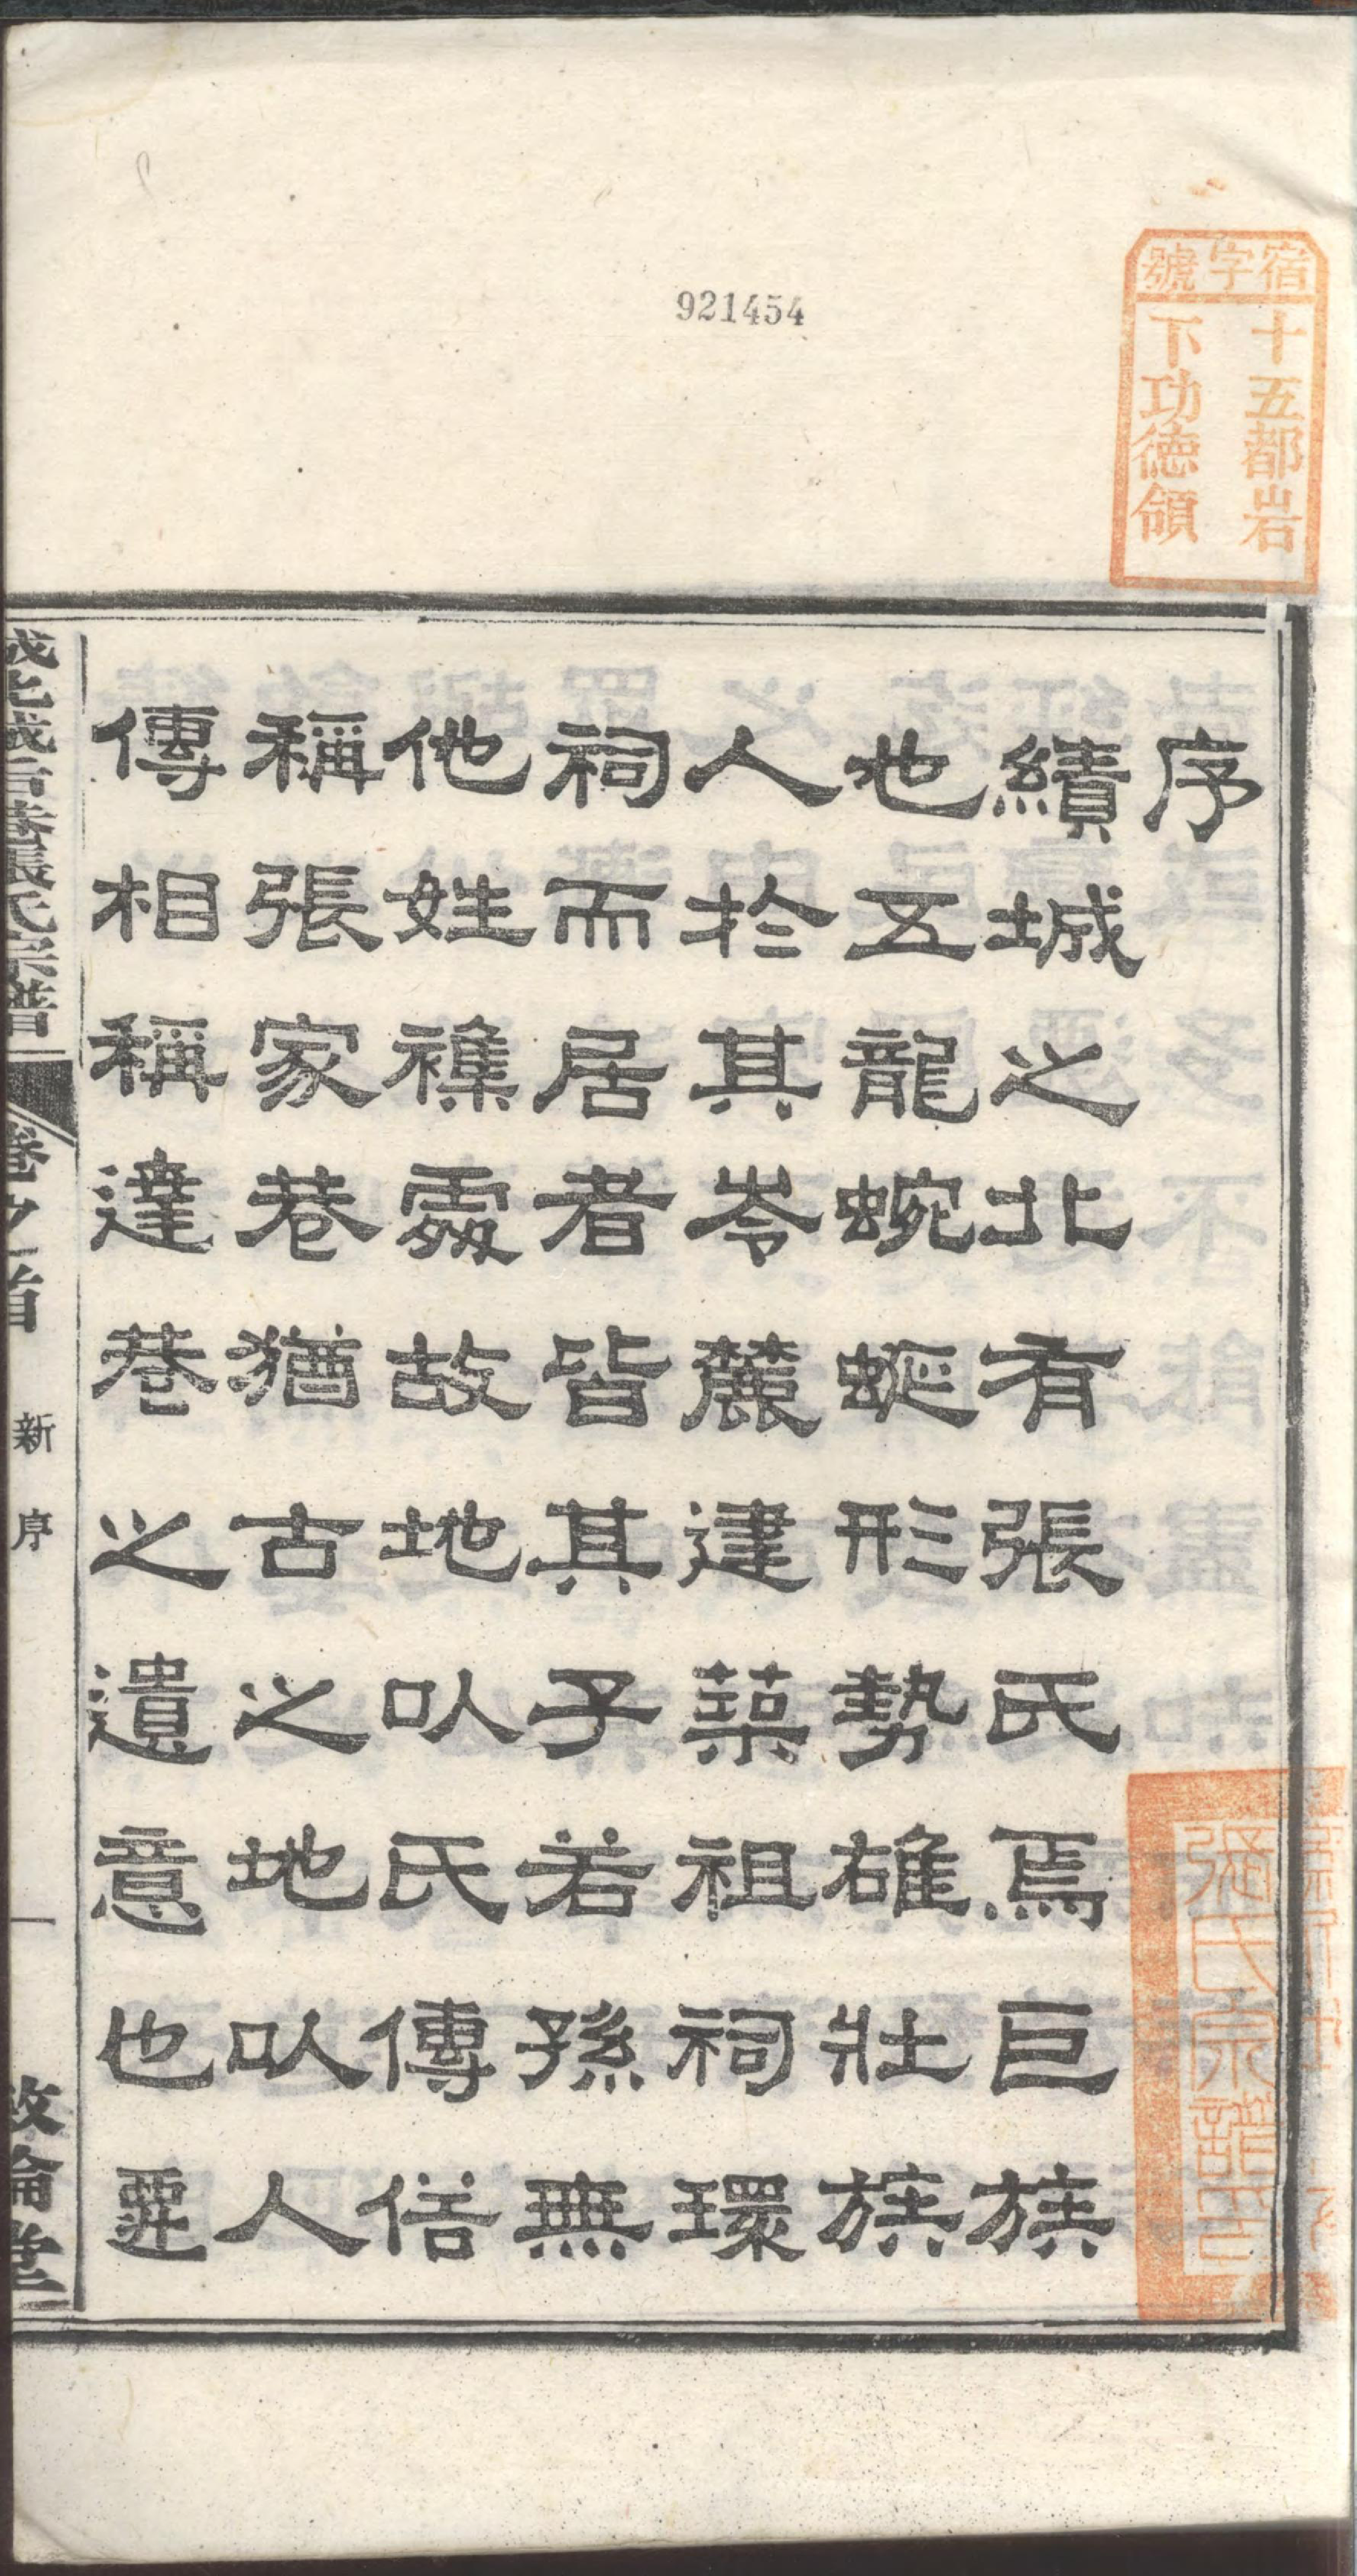 921454
宿字號
十五都岩
下功德領
序
績城之北有張氏焉巨族
也五龍蜿蜒形勢雄壯族
人於其岺麓建築祖祠環
祠而居者皆其子若孫無
他姓襍處故地以氏傳俗
稱張家巷猶古之地以人
傳相稱達巷之遺意也
張氏宗譜
卷之首
新序
一
敘倫堂